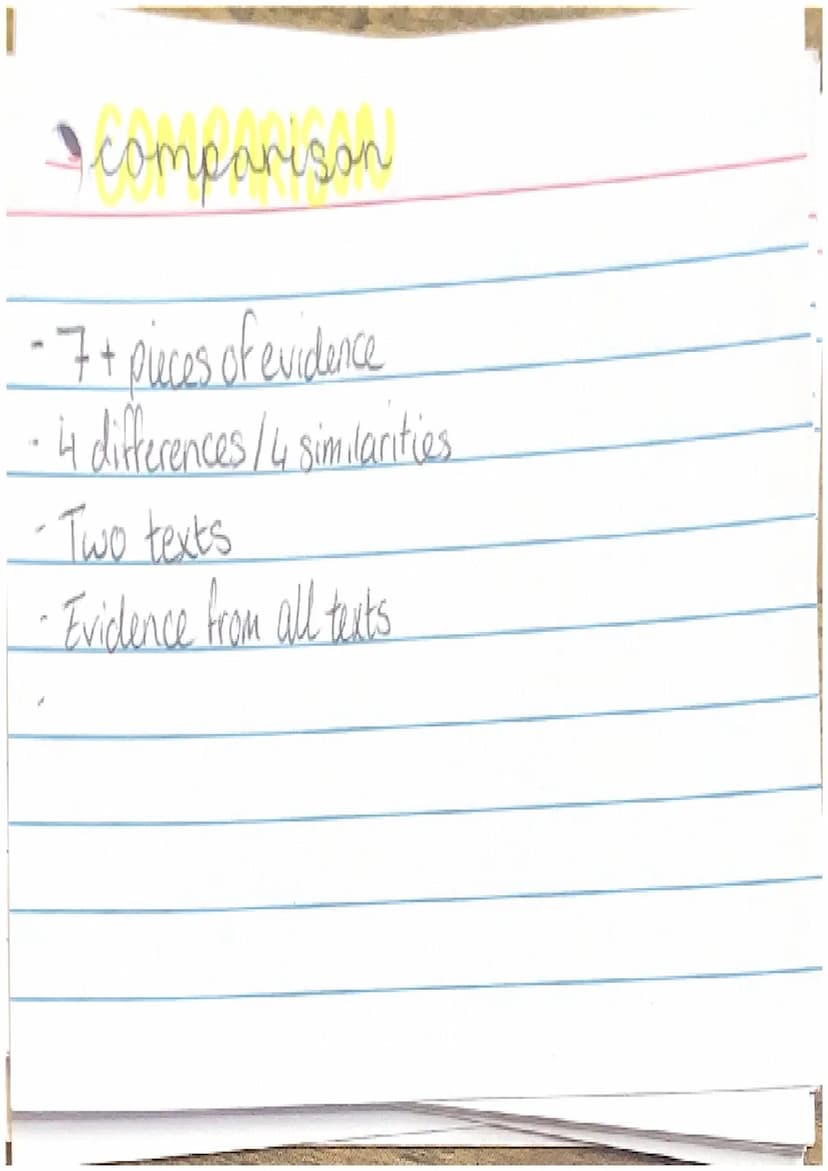 comparison
- 7+ pieces of evidence
- 4 differences/4 similarities
- Two texts
- Evidence from all texts
-